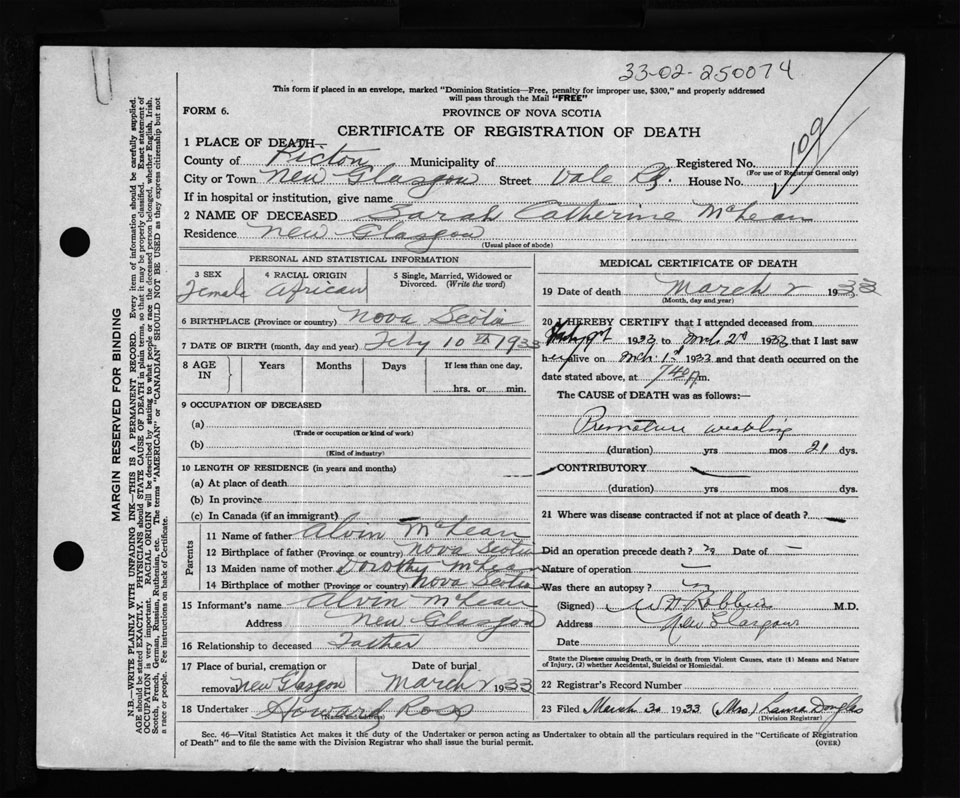 33-02-250074
This form if placed in an envelope, marked "Dominion Statistics—Free, penalty for improper use, $300," and properly addressed
will pass through the Mail "FREE"
FORM 6.
PROVINCE OF NOVA SCOTIA
CERTIFICATE OF REGISTRATION OF DEATH
109
1 PLACE OF DEATH—
County of Pictou Municipality of Registered No.
(For use of Registrar General only)
City or Town New Glasgow Street Vale Rd. House No.
If in hospital or institution, give name
2 NAME OF DECEASED Sarah Catherine McLean
Residence New Glasgow
(Usual place of abode)
PERSONAL AND STATISTICAL INFORMATION
3 SEX 4 RACIAL ORIGIN 5 Single, Married, Widowed or
Divorced. (Write the word)
Female African
6 BIRTHPLACE (Province or country) Nova Scotia
7 DATE OF BIRTH (month, day and year) Feby 10th 1933
8 AGE IN Years Months Days If less than one day,
hrs. or min.
9 OCCUPATION OF DECEASED
(a)
(Trade or occupation or kind of work)
(b)
(Kind of industry)
10 LENGTH OF RESIDENCE (in years and months)
(a) At place of death
(b) In province
(c) In Canada (if an immigrant)
Parents
11 Name of father Alvin McLean
12 Birthplace of father (Province or country) Nova Scotia
13 Maiden name of mother Dorothy McLean
14 Birthplace of mother (Province or country) Nova Scotia
15 Informant's name Alvin McLean
Address New Glasgow
16 Relationship to deceased Father
17 Place of burial, cremation or Date of burial
removal New Glasgow March 2 1933
18 Undertaker Howard Ross
(Name and address)
MEDICAL CERTIFICATE OF DEATH
19 Date of death March 2 1933
(Month, day and year)
20 I HEREBY CERTIFY that I attended deceased from
1933 to Mch 2d 1933 that I last saw
her alive on Mch 1st 1933 and that death occurred on the
date stated above, at 740 m.
The CAUSE of DEATH was as follows:
Premature weakling
(duration) yrs mos 21 dys.
CONTRIBUTORY
(duration) yrs mos dys.
21 Where was disease contracted if not at place of death?
Did an operation precede death? Date of —
Nature of operation —
Was there an autopsy?
(Signed) M.D.
Address New Glasgow
Date
State the Disease causing Death, or in death from Violent Causes, state (1) Means and Nature
of Injury, (2) whether Accidental, Suicidal or Homicidal.
22 Registrar's Record Number
23 Filed March 3d 1933 (Mrs) Lama Douglas
(Division Registrar)
Sec. 46—Vital Statistics Act makes it the duty of the Undertaker or person acting as Undertaker to obtain all the particulars required in the "Certificate of Registration
of Death" and to file the same with the Division Registrar who shall issue the burial permit.
(OVER)
MARGIN RESERVED FOR BINDING
N.B.—WRITE PLAINLY WITH UNFADING INK—THIS IS A PERMANENT RECORD. Every item of information should be carefully supplied.
AGE should be stated EXACTLY. PHYSICIANS should STATE CAUSE OF DEATH in plain terms, so that it may be properly classified. Exact statement of
OCCUPATION is very important. RACIAL ORIGIN will be described by stating to what people or race the deceased person belonged, whether English, Irish,
Scotch, French, German, Russian, Ruthenian, etc. The terms "AMERICAN" or "CANADIAN" SHOULD NOT BE USED as they express citizenship but not
a race or people. See instructions on back of Certificate.